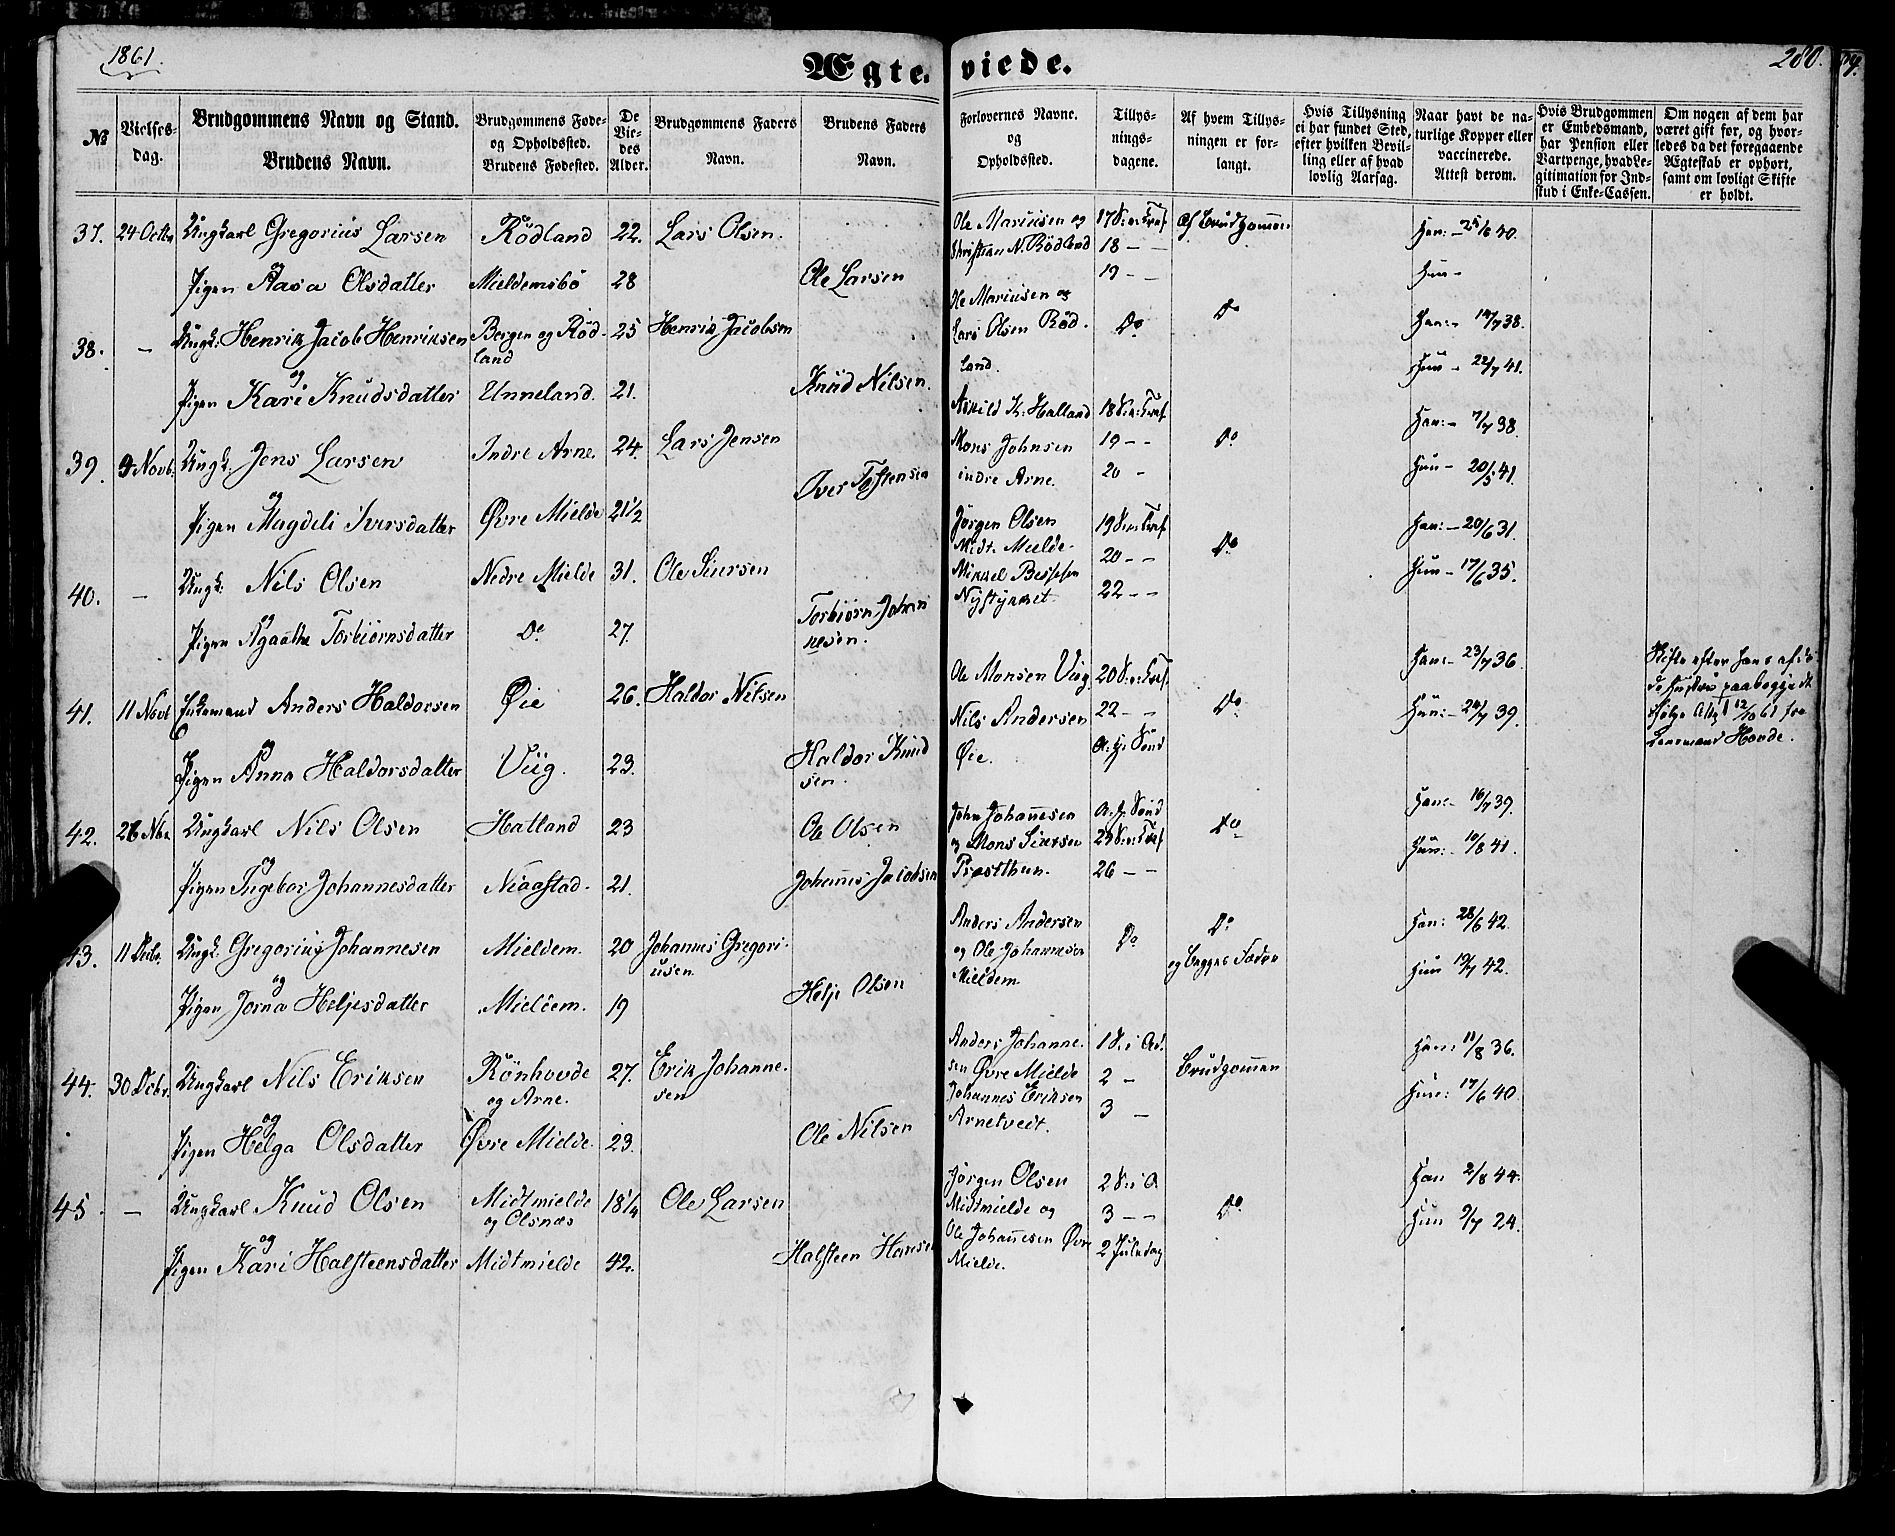 1861.
Ægteviede.
280.
№
Vielses-dag.
Brudgommens Navn og Stand.
Brudens Navn.
Brudgommens Føde- og Opholdssted.
Brudens Fødested.
De Vie-des Alder.
Brudgommens Faders Navn.
Brudens Faders Navn.
Forlovernes Navne. og Opholdssted.
Tillys-nings-dagene.
Af hvem Tillys-ningen er for-langt.
Hvis Tillysning ei har fundet Sted, efter hvilken Bevil-ling eller af hvad lovlig Aarsag.
Naar havt de na-turlige Kopper eller vaccinerede. Attest derom.
Hvis Brudgommen er Embedsmand, har Pension eller Vartpenge, hvad Le-gitimation for Ind-skud i Enke-Cassen.
Om nogen af dem har været gift før, og hvor-ledes da det foregaaende Ægteskab er ophørt, samt om lovligt Skifte er holdt.
37. 24 Octbr Ungkarl Gregorius Larsen Rödland 22. Lars Olsen. Ole Mariusen og Christian N. Rödland 17 S. e. Tref 18 — 19 — Af Brudgommen Han: 25/6 40.
og
Pigen Aasa Olsdatter Mieldemsbö 28 Ole Larsen Hun -
38. — Ungk: Henrik Jacob Henriksen Bergen og Rödland 25 Henrik Jacobsen Ole Mariusen og Lars Olsen Rödland. Do Do Han: 14/7 38.
og
Pigen Kari Knudsdatter Unneland. 21. Knud Nilsen. Hun - 22/7 41.
39. 9 Novb. Ungk: Jens Larsen Indre Arne. 24. Lars Jensen Askild K. Halland Mons Johnsen indre Arne. 18 S. e. Tref. 19 — 20 - Do Han: 7/7 38.
og
Pigen Magdeli Iversdatter Øvre Mielde 21 1/2 Iver Tostensen Hun - 20/5 41.
40. — Ungk: Nils Olsen Nedre Mielde 31. Ole Siursen Jørgen Olsen Midt. Mielde. Mikkel Nystykket. 19 S. e. Tref 20 — 22 — Do Han: 20/6 31.
og
Pigen Agaathe Torbiørnsdatter Do 27. Torbiørn Johannesen. Hun - 17/6 35.
41. 11 Novb Enkemand Anders Haldorsen Øie 26. Haldor Nilsen Ole Monsen Viig. Nils Andersen Øie. 20 S. e. Tref. 22 — A. H. Sönd Do Han: 23/7 36. Skifte efter hans afdøde Hustru paabegyndt ifølge Att. 12/10 61 fra Lensmand Hovde.
og
Pigen Anna Haldorsdatter Viig. 23. Haldor Knudsen. Hun: 24/7 39.
42. 26 Nov Ungkarl Nils Olsen Hatland 23 Ole Olsen John Johannesen og Mons Siursen Præstthun. A. H. Sönd 25 S. e. Tref 26 — Do Han: 16/7 39.
og
Pigen Ingebor Johannesdatter Niaastad. 21. Johannes Jacobsen Hun: 10/8 41.
43. 11 Decbr. Ungk: Gregorius Johannesen Mieldem. 20 Johannes Gregoriusen Anders Andersen og Ole Johannesen Mieldem Do Do og begges Fædre Han: 28/6 42.
og
Pigen Jorna Heljesdatter Mieldem. 19 Helje Olsen Hun 19/7 42.
44. 30 Dcbr. Ungkarl Nils Eriksen Rönhovde og Arne. 27. Erik Johannesen Anders Johannesen Øvre Mielde Johannes Eriksen Arnetvedt. 1 S. i Ad. 2 - 3 — Brudgommen Han: 11/8 36.
og
Pigen Helga Olsdatter Øvre Mielde. 23. Ole Nilsen Hun: 17/6 40.
45. — Ungkarl Knud Olsen Midtmielde og Olsnæs 18 1/4 Ole Larsen Jørgen Olsen Midtmielde og Ole Johannesen Øvre Mielde. 2 S. i A 3 — 2 Juledag Do Han 2/8 44.
og
Pigen Kari Halsteensdatter Midtmielde 42. Halsteen Hansen Hun 9/7 24.